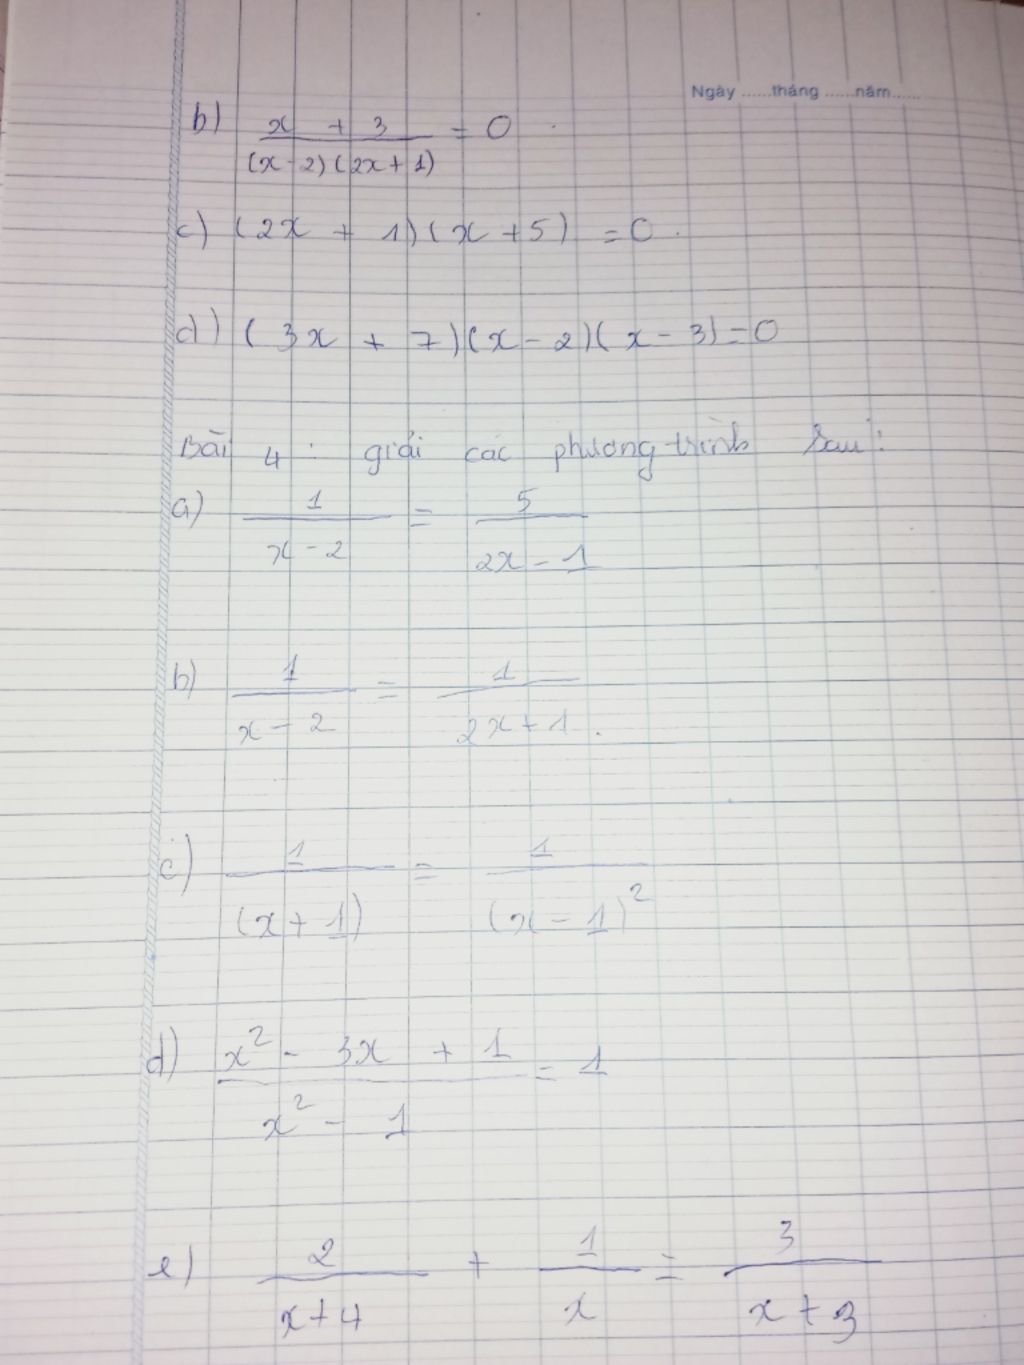 Ngày ......tháng ......năm......
b) x + 3 / (x - 2)(2x + 1) = 0
c) (2x + 1)(x + 5) = 0.
d) (3x + 7)(x - 2)(x - 3) = 0
Bài 4 : giải các phương trình sau :
a) 1 / x - 2 = 5 / 2x - 1
b) 1 / x - 2 = 1 / 2x + 1.
c) 1 / (x + 1) = 1 / (x - 1)²
d) x² - 3x + 1 / x² - 1 = 1
e) 2 / x + 4 + 1 / x = 3 / x + 3